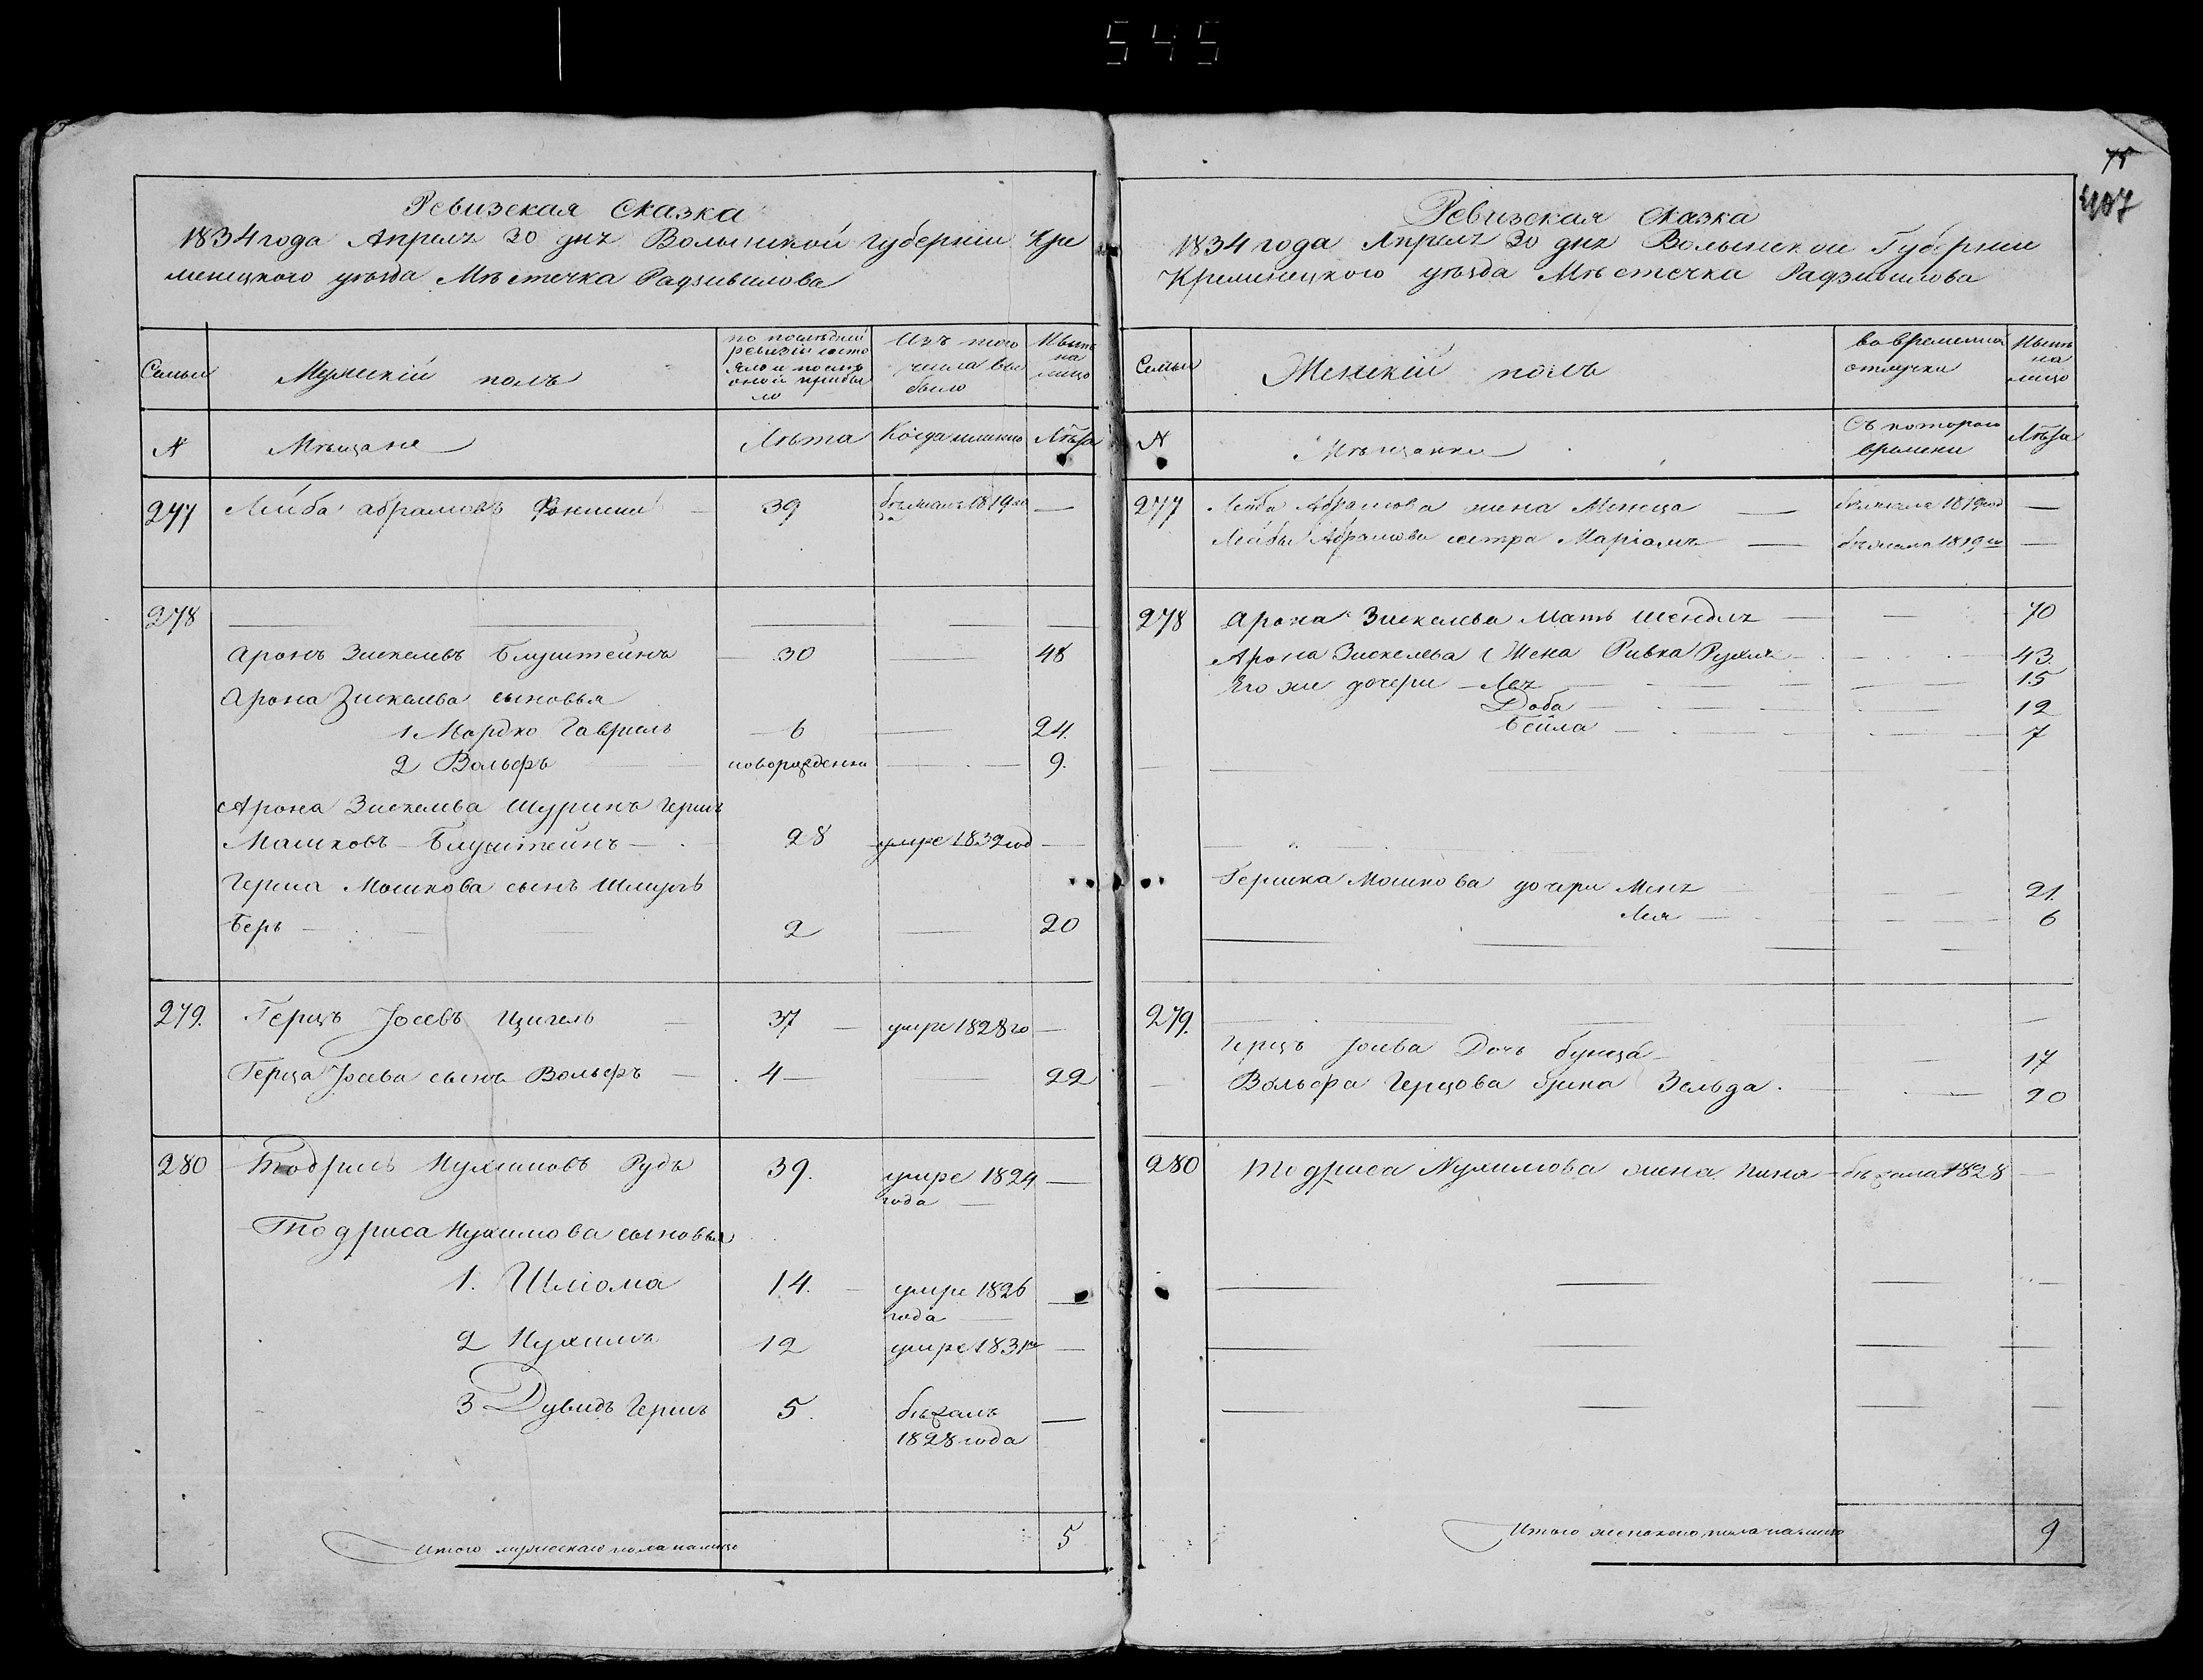 545
75
407
Ревизская Сказка
1834 года Апреля 30 дня Волынской губернии Кре
менецкого уѣзда Мѣстечка Радзивилова
Семьи
Мужеский полъ
по послѣдней
ревизіи состо
яло и послѣ
оной прибы
ло
Изъ того
числа вы
было
Нынѣ
на
лицо
N
Мѣщане
Лѣта
Когда именно
Лѣта
277 Лейба Абрамовъ 39 бѣжалъ 1819 го —
да
278
Аронъ Зискелевъ Блуштейнъ 30 — 48
Арона Зискелева сыновья
1 Мордко Гавриль 6 — 24.
2 Вольфъ новорожденны — 9.
Арона Зискелева Шуринъ Герш
Машковъ Блуштейнъ 28 умре 1832 год —
Герша Мошкова сынъ Шмуль
Беръ 2 — 20
279. Герцъ Иосевъ Цигель 37 умре 1828 го —
Герца Иосева сынъ Вольфъ 4 — 22
280 Тодрисъ Нухимовъ Рудъ 39. умре 1824 —
года
Тодриса Нухимова сыновья
1. Шлиома 14. умре 1826 —
года
2 Нухимъ 12 умре 1831 го —
3 Дувидъ Гершъ 5. бѣжалъ —
1828 года
Итого мужескаго пола налицо 5
Ревизская Сказка
1834 года Апреля 30 дня Волынской Губернии
Кременецкого уѣзда Мѣстечка Радзивилова
Семьи
Женский полъ
во временной
отлучки
Нынѣ
на
лицо
N
Мѣщанки
Съ которого
времени
Лѣта
277 Лейба Абрамова жена Менца — бѣжала 1819 год —
Лейбы Абрамова сестра Маріамъ — бѣжала 1819 го —
278 Арона Зискелева Мать Шендля — 70
Арона Зискелева Жена Ривка Рухля — 43.
Его же дочери — Лея 15
Доба 12
Бейла 7
Гершка Мошкова дочери Меня 21.
Лея 6
279.
Герцъ Иосева Дочь Бунца 17
Вольфа Герцова жена Зельда. 20
280 Тодриса Нухимова жена Пиня — бѣжала 1828 —
Итого женского пола налицо 9